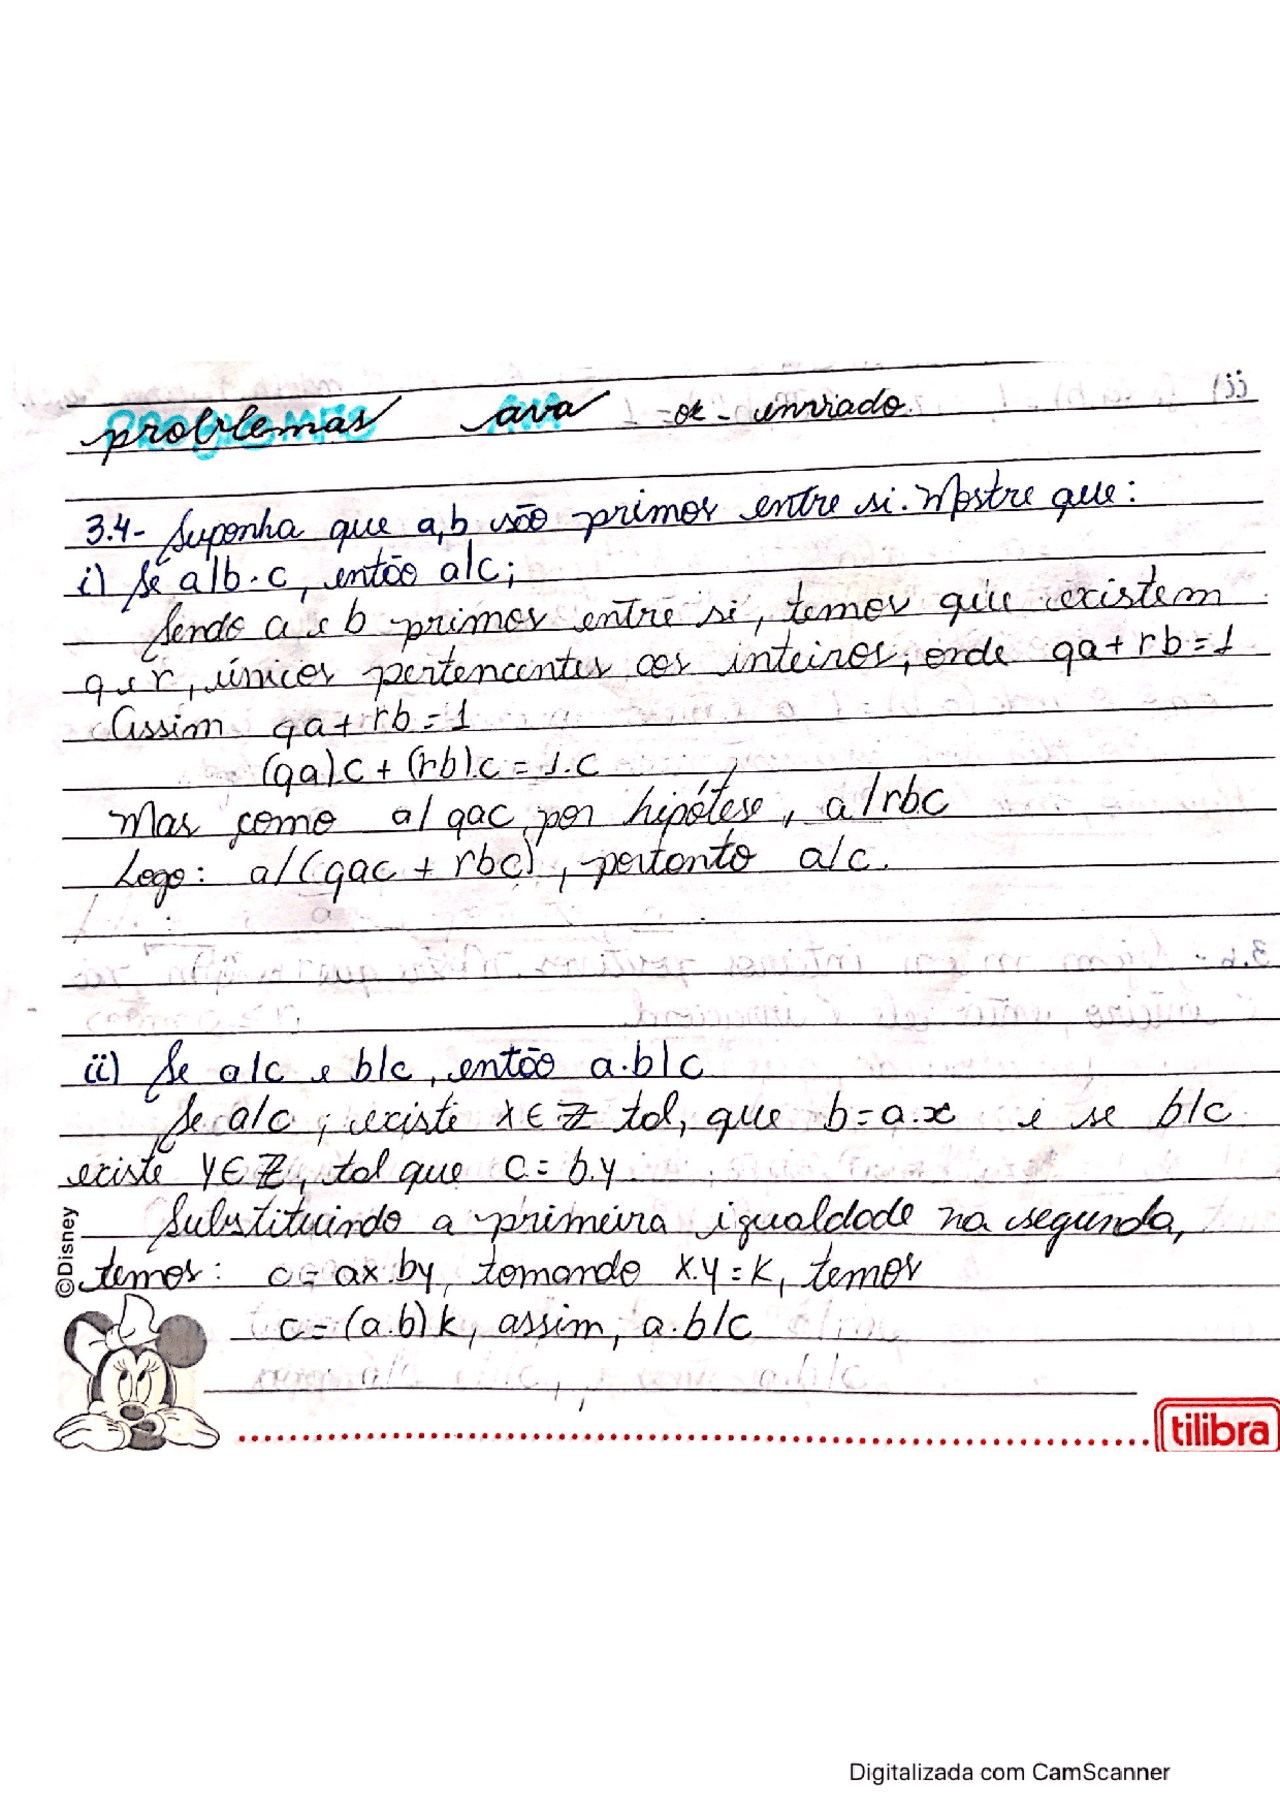 problemas ava = ok - enviado.
3.4- Suponha que a,b são primos entre si. Mostre que:
i) Se a|b·c, então a|c;
Sendo a e b primos entre si, temos que existem
q e r, únicos pertencentes aos inteiros, onde qa+rb=1
Assim qa+rb=1
(qa).c + (rb).c = 1.c
Mas como a/qac, por hipótese, a/rbc
Logo: a/(qac + rbc), portanto a/c.
ii) Se a/c e b/c, então a.b|c
Se a/c, existe x∈ℤ tal, que b=a.x e se b/c
existe y∈ℤ, tal que c=b.y
Substituindo a primeira igualdade na segunda,
temos: c=ax.by, tomando x.y=k, temos
c=(a.b)k, assim, a.b/c
©Disney
tilibra
Digitalizada com CamScanner